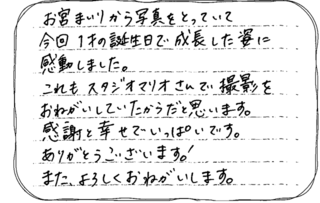 お宮まいりから写真をとっていて
今回1才の誕生日で成長した姿に
感動しました。
これもスタジオマリオさんで撮影を
おねがいしていたからだと思います。
感謝と幸せでいっぱいです。
ありがとうございます!
また、よろしくおねがいします。